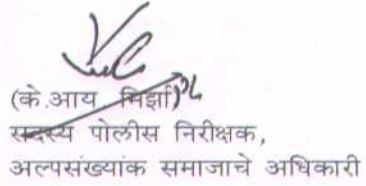 (के.आय मिर्झा)
सदस्य पोलीस निरीक्षक,
अल्पसंख्यांक समाजाचे अधिकारी